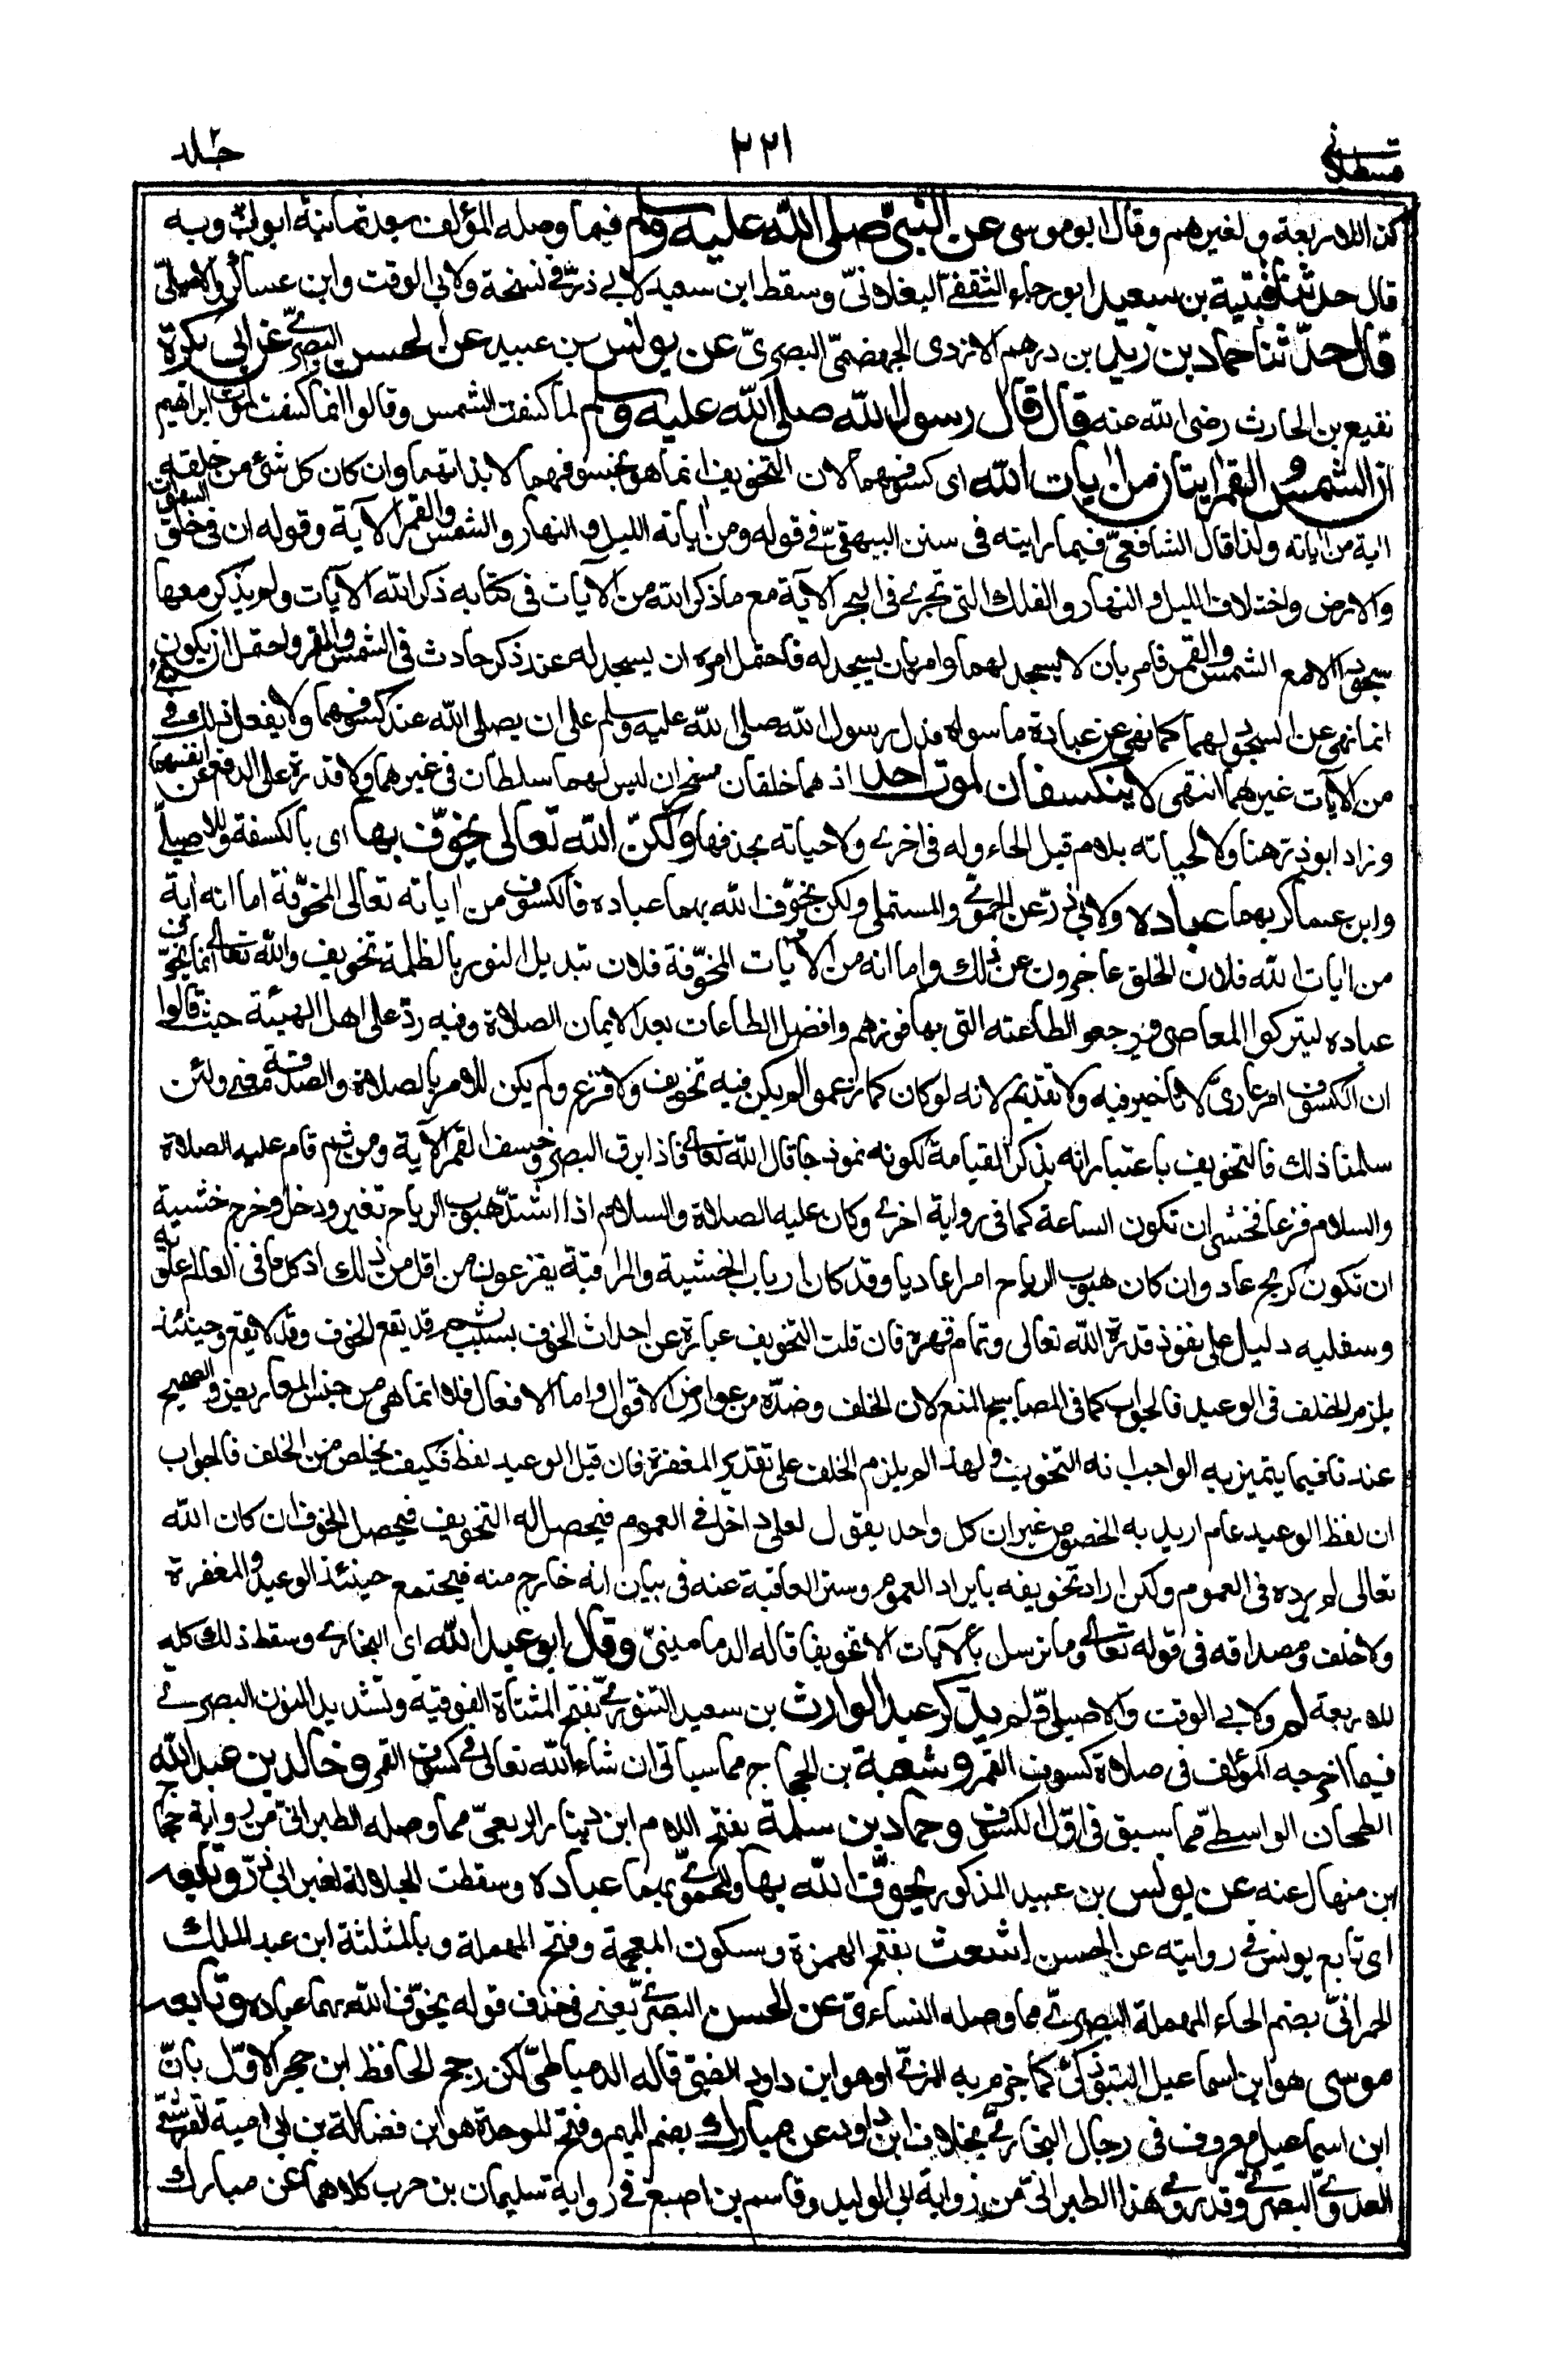 قسطلانی
٢٢١
جلد ٢
كذا للاربعة و لغيرهم وقال ابو موسى عن النبيّ صلى الله عليه وسلم فيما وصله المؤلف بعد ثمانية ابواب وبه
قال حدثنا قتيبة بن سعيد ابو رجاء الثقفيّ البغلانىّ وسقط ابن سعيد لابي ذرّ في نسخة ولابي الوقت وابن عساكر والاصيلىّ
قال حدّثنا حماد بن زيد بن درهم الازدى الجهضمىّ البصرىّ عن يونس بن عبيد عن الحسن البصرىّ عن ابى بكرة
نفيع بن الحارث رضى الله عنه قال قال رسول الله صلى الله عليه وسلم لما كسفت الشمس وقالوا انما كسفت لموت ابراهيم
ان الشمس و القمر ايتان من ايات الله اى كسوفهما لان التخويف انما هو بخسوفهما لا بذاتهما وان كان كل شئ من خلقه
اية من اياته ولذا قال الشافعىّ فيما رايته فى سنن البيهقىّ فى قوله ومن اياته الليل والنهار والشمس والقمر الآية وقوله ان فى خلق السموات
والارض واختلاف الليل والنهار والفلك التى تجرى فى البحر الآية مع ما ذكر الله من الآيات فى كتابه ذكر الله الآيات ولم يذكر معها
سجودا الا مع الشمس والقمر فامر بان لا يسجد لهما وامر بان يسجد له فاحتمل امره ان يسجد له عند ذكر حادث فى الشمس والقمر واحتمل ان يكون
انما نهى عن السجود لهما كما نهى عن عبادة ما سواه فدل رسول الله صلى الله عليه وسلم على ان يصلى الله عند كسوفهما ولا يفعل ذلك فى شئ
من الآيات غيرهما انتهى لا ينكسفان لموت احد اذ هما خلقان مسخران ليس لهما سلطان فى غيرهما ولا قدرة على الدفع عن انفسهما
وزاد ابو ذر هنا ولا لحياته بلام قبل الحاء وله فى اخرى ولا حياته بحذفها ولكنّ الله تعالى يخوّف بها اى بالكسفة وللاصيلىّ
وابن عساكر بهما عباده ولابى ذرّ عن الحموىّ والمستملى ولكن يخوّف الله بهما عباده فالكسوف من اياته تعالى المخوّفة اما انه اية
من ايات الله فلان الخلق عاجزون عن ذلك واما انه من الآيات المخوّفة فلان تبديل النور بالظلمة تخويف والله تعالى انما يخوّف
عباده ليتركوا المعاصى ويرجعوا لطاعته التى بها فوزهم وافضل الطاعات بعد الايمان الصلاة وفيه ردّ على اهل الهيئة حيث قالوا
ان الكسوف امر عادىّ لا تأخير فيه ولا تقديم لانه لو كان كما زعموا لم يكن فيه تخويف ولا فزع ولم يكن للامر بالصلاة والصدقة معنى ولئن
سلمنا ذلك فالتخويف باعتبار انه يذكر القيامة لكونه نموذجا قال الله تعالى فاذا برق البصر وخسف القمر الآية ومن ثم قام عليه الصلاة
والسلام فزعا فخشى ان تكون الساعة كما فى رواية اخرى وكان عليه الصلاة والسلام اذا اشتدّ هبوب الرياح تغير ودخل وخرج خشية
ان تكون كريح عاد وان كان هبوب الرياح امرا عاديا وقد كان ارباب الخشية والمراقبة يفزعون من اقل من ذلك اذ كل ما فى العالم علويّه
وسفليه دليل على نفوذ قدرة الله تعالى وتمام قهره فان قلت التخويف عبارة عن احداث الخوف بسبب ثم قد يقع الخوف وقد لا يقع وحينئذ
يلزم الخلف فى الوعيد فالجواب كما فى المصابيح المنع لان الخلف وضدّه من عوارض الاقوال واما الافعال فلا انما هى من جنس المعاريض والصحيح
عندنا فيما يتميز به الواجب انه التخويف ولهذا لم يلزم الخلف على تقدير المغفرة فان قيل الوعيد لفظ فكيف يخلص من الخلف فالجواب
ان لفظ الوعيد عام اريد به الخصوص غير ان كل واحد يقول لعلى داخل فى العموم فيحصل له التخويف فيحصل الخوف ان كان الله
تعالى لم يرده فى العموم ولكن اراد تخويفه بايراد العموم وستر العاقبة عنه فى بيان انه خارج منه فيجتمع حينئذ الوعيد والمغفرة
ولا خلف ومصداقه فى قوله تعالى وما نرسل بالآيات الا تخويفا قاله الدمامينىّ وقال ابو عبد الله اى البخارى وسقط ذلك كله
للاربعة لم ولابى الوقت والاصيلىّ ولم يذكر عبد الوارث بن سعيد التنورىّ بفتح المثناة الفوقية وتشديد النون البصرى
فيما اخرجه المؤلف فى صلاة كسوف القمر و شعبة بن الحجاج مما سياتى ان شاء الله تعالى فى كسوف القمر و خالد بن عبد الله
الطحان الواسطىّ مما سبق فى اوّل الكسوف وحماد بن سلمة بفتح اللام ابن دينار الربعىّ مما وصله الطبرانىّ من رواية حجاج
بن منهال عنه عن يونس بن عبيد المذكور يخوّف الله بها وللحموىّ بهما عباده وسقطت الجلالة لغير ابى ذرّ وتابعه
اى تابع يونس فى روايته عن الحسن اشعث بفتح الهمزة وسكون المعجمة وفتح المهملة وبالمثلثة ابن عبد الملك
الحمرانىّ بضم الحاء المهملة البصرىّ مما وصله النساءى عن الحسن البصرىّ يعنى فى حذف قوله يخوّف الله بهما عباده وتابعه
موسى هو ابن اسماعيل التبوذكىّ كما جزم به المزىّ او هو ابن داود الضبىّ قاله الدمياطىّ لكن رجح الحافظ ابن حجر الاوّل بانّ
ابن اسماعيل معروف فى رجال البخارىّ بخلاف ابن داود عن مبارك بضم الميم وفتح الموحدة هو ابن فضالة بن ابى امية القرشىّ
العدوىّ البصرىّ وقد روى هذا الطبرانىّ من رواية ابى الوليد وقاسم بن اصبغ فى رواية سليمان بن حرب كلاهما عن مبارك